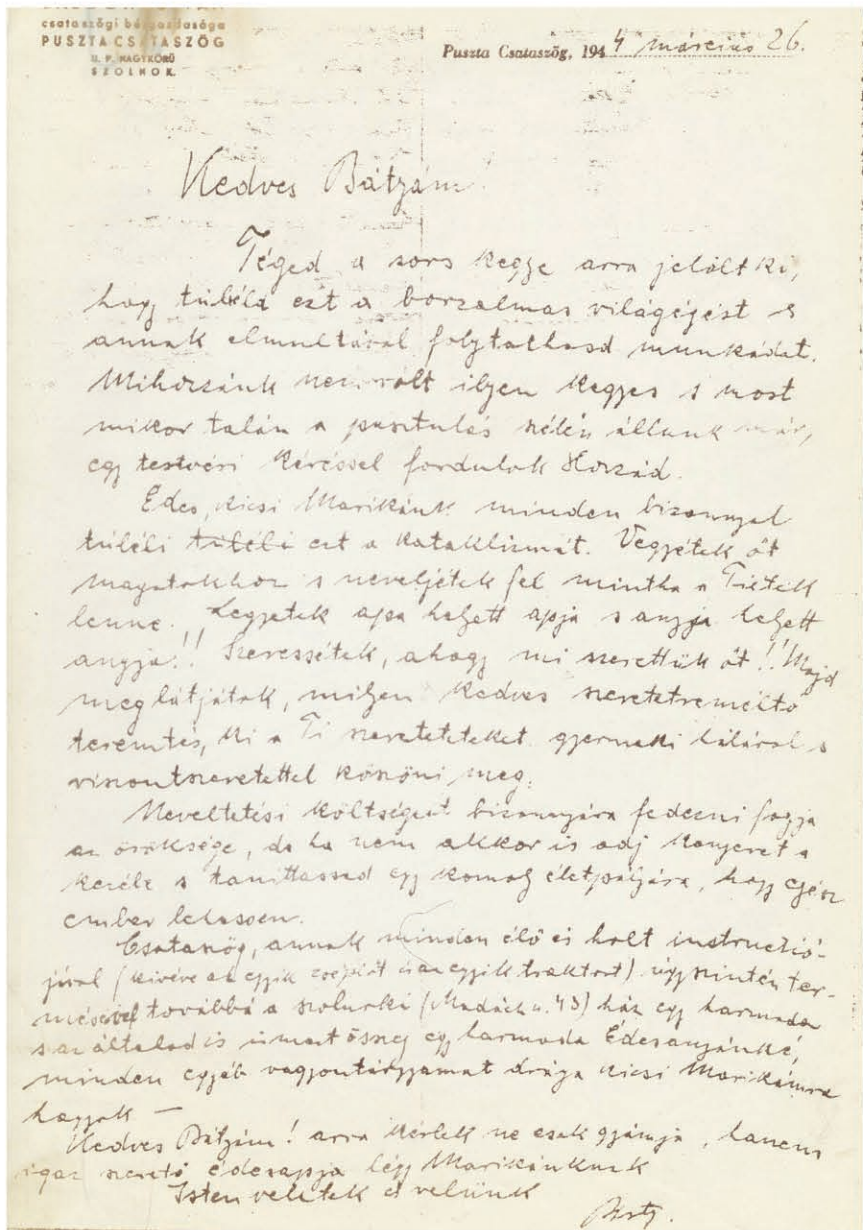 csataszögi bérgazdasága
PUSZTA CSATASZÖG
U. P. NAGYKÖRÜ
SZOLNOK.
Puszta Csataszög, 194 4 március 26.
Kedves Bátyám!
Téged a sors kegye arra jelölt ki,
hogy túléld ezt a borzalmas világégést s
annak elmultával folytathasd munkádat.
Mihozzánk nem vólt ilyen kegyes s most
mikor talán a pusztulás szélén állunk már,
egy testvéri kéréssel fordulok Hozzád.
Édes, kicsi Marikánk minden bizonnyal
túléli túléli ezt a kataklizmát. Vegyétek őt
magatokhoz s neveljétek fel mintha a Tietek
lenne. Legyetek apa helyett apja s anyja helyett
anyja!! Szeressétek, ahogy mi szerettük őt!! Majd
meglátjátok, milyen kedves szeretetreméltó
teremtés, ki a Ti szereteteteket gyermeki hálával s
viszontszeretettel köszöni meg.
Neveltetési költségeit bizonyára fedezni fogja
az öröksége, de ha nem akkor is adj kenyeret a
kezébe s taníttassad egy komoly életpályára, hogy egész
ember lehessen.
Csataszög, annak minden élő és holt instructió-
jával (kivéve az egyik cséplőt és az egyik traktort) úgyszintén ter-
mésével továbbá a szolnoki (Madách u. 43) ház egy harmada
s az általad is ismert összeg egy harmada Édesanyánké,
minden egyéb vagyontárgyamat drága kicsi Marikámra
hagyok —
Kedves Bátyám! arra kérlek ne csak gyámja, hanem
igaz szerető édesapja légy Marikánknak
Isten veletek s velünk